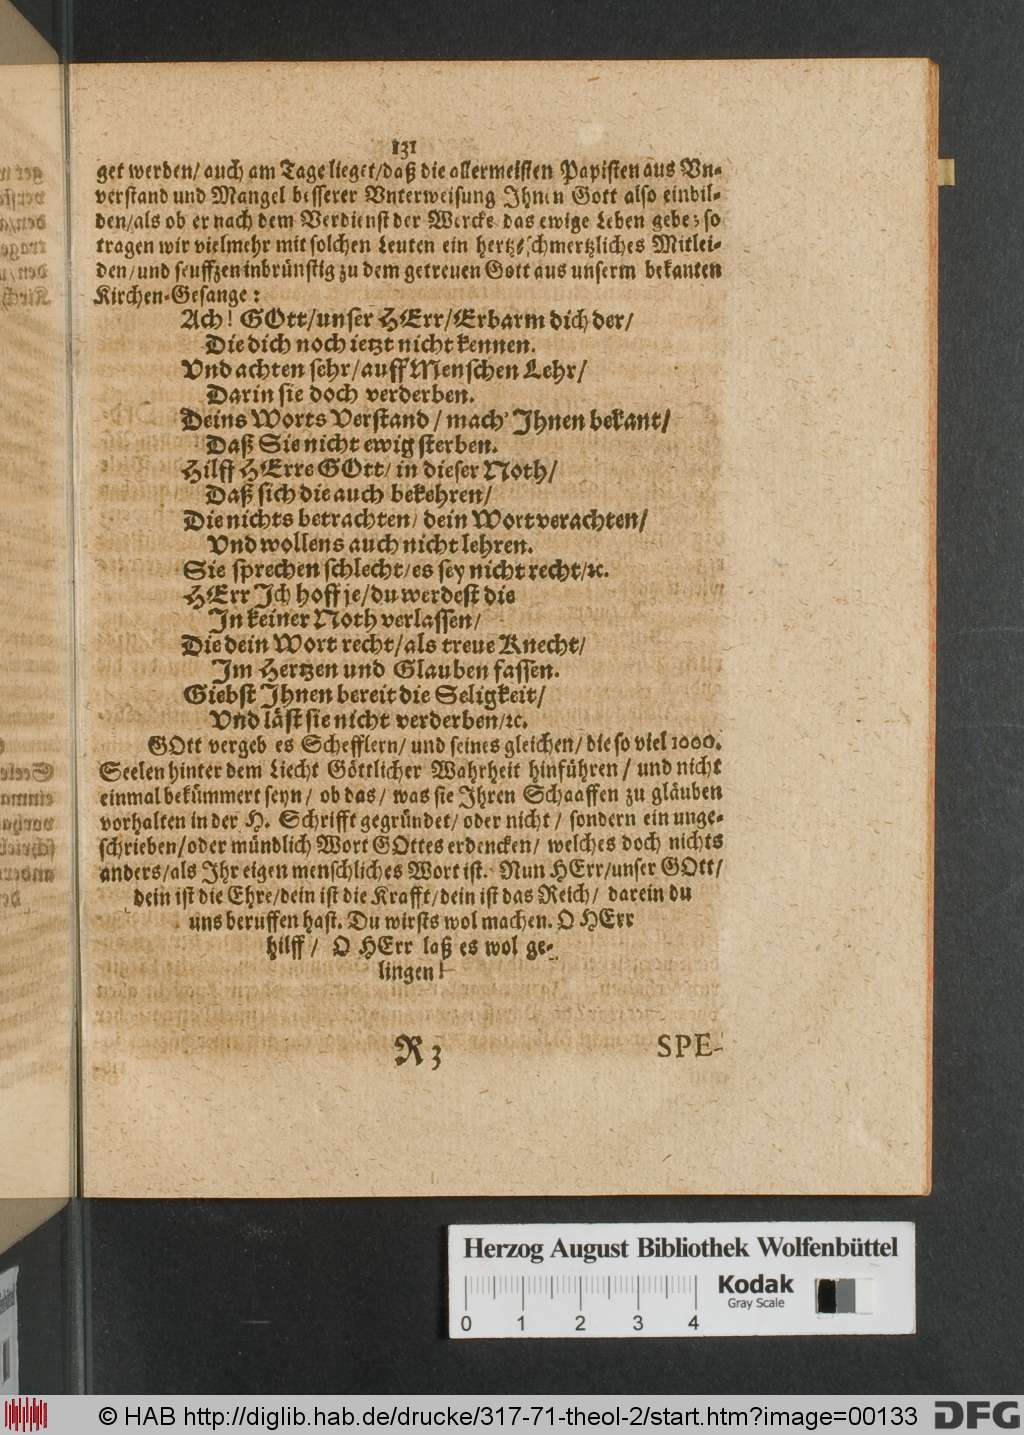 131
get werden/ auch am Tage lieget/ daß die allermeisten Papisten aus Vn-
verstand und Mangel besserer Vnterweisung Ihnen Gott also einbil-
den/ als ob er nach dem Verdienst der Wercke das ewige Leben gebe; so
tragen wir vielmehr mit solchen Leuten ein hertz-schmertzliches Mitlei-
den/ und seuffzen inbrünstig zu dem getreuen Gott aus unserm bekanten
Kirchen-Gesange:
Ach! GOtt/ unser HErr/ Erbarm dich der/
Die dich noch ietzt nicht kennen.
Vnd achten sehr/ auff Menschen Lehr/
Darin sie doch verderben.
Deins Worts Verstand/ mach' Ihnen bekant/
Daß Sie nicht ewig sterben.
Hilff HErre GOtt/ in dieser Noth/
Daß sich die auch bekehren/
Die nichts betrachten/ dein Wort verachten/
Vnd wollens auch nicht lehren.
Sie sprechen schlecht/ es sey nicht recht/ ꝛc.
HErr Ich hoff je/ du werdest die
In keiner Noth verlassen/
Die dein Wort recht/ als treue Knecht/
Im Hertzen und Glauben fassen.
Giebst Ihnen bereit die Seligkeit/
Vnd läst sie nicht verderben/ ꝛc.
GOtt vergeb es Schefflern/ und seines gleichen/ die so viel 1000.
Seelen hinter dem Liecht Göttlicher Wahrheit hinführen/ und nicht
einmal bekümmert seyn/ ob das/ was sie Ihren Schaaffen zu gläuben
vorhalten in der H. Schrifft gegründet/ oder nicht/ sondern ein unge-
schrieben/ oder mündlich Wort GOttes erdencken/ welches doch nichts
anders/ als Ihr eigen menschliches Wort ist. Nun HErr/ unser GOtt/
dein ist die Ehre/ dein ist die Krafft/ dein ist das Reich/ darein du
uns beruffen hast. Du wirsts wol machen. O HErr
hilff/ O HErr laß es wol ge-
lingen!
R 3
SPE-
Herzog August Bibliothek Wolfenbüttel
Kodak
Gray Scale
0 1 2 3 4
© HAB http://diglib.hab.de/drucke/317-71-theol-2/start.htm?image=00133
DFG